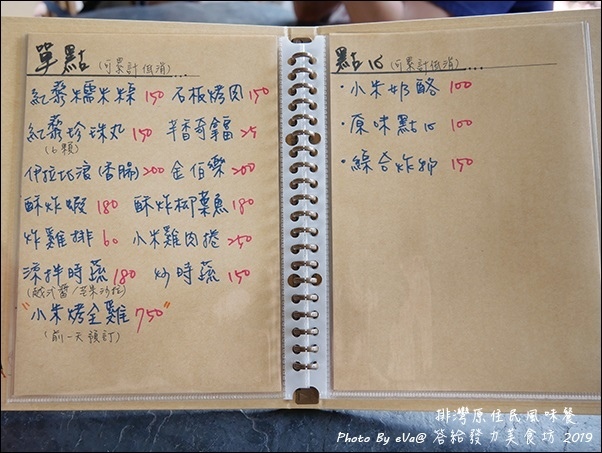 單點 (可累計低消)
紅藜糯米粽 150 石板烤肉 150
紅藜珍珠丸 150 芋香奇拿富 25
(6顆)
伊拉巧浪(香腸) 200 金伯樂 200
酥炸蝦 180 酥炸柳葉魚 180
炸雞排 60 小米雞肉捲 250
涼拌時蔬 180 炒時蔬 150
"小米烤全雞 750"
(前一天預訂)
點心 (可累計低消)
·小米奶酪 100
·原味點心 100
·綜合炸物 150
排灣原住民風味餐
Photo By eVa@ 答給發力美食坊 2019